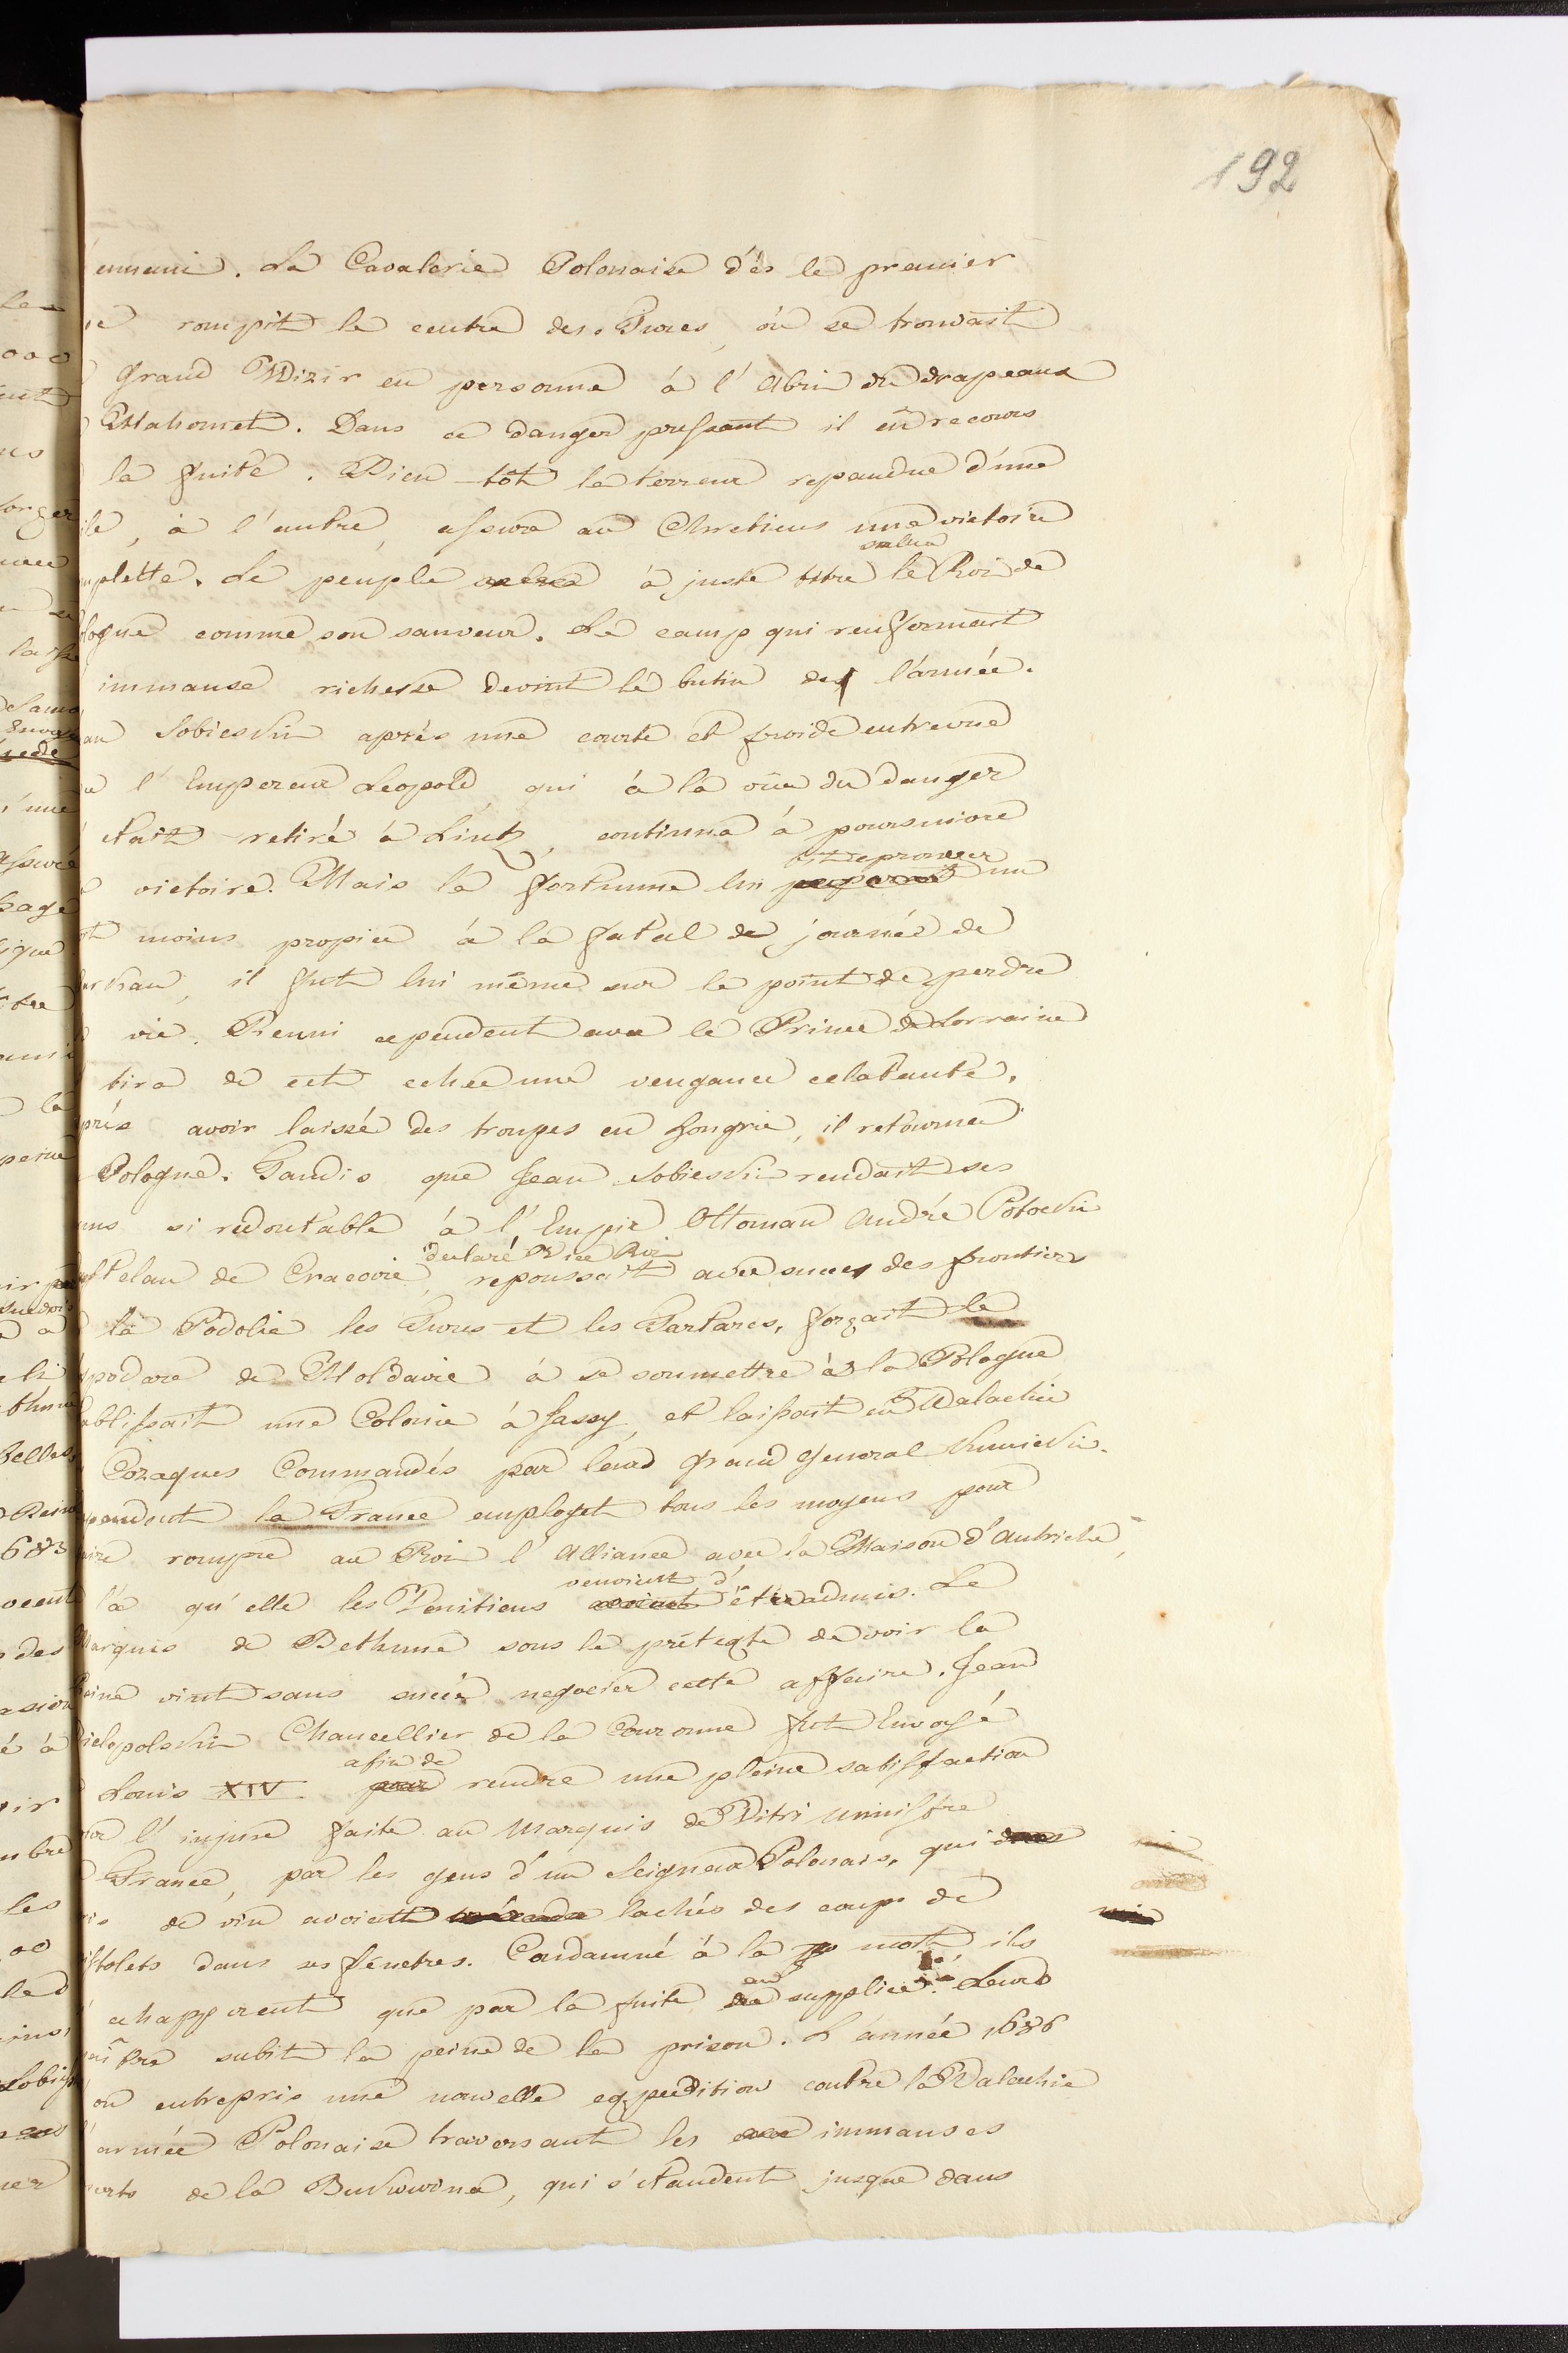 192
ennemi. La Cavalerie Polonaise dès le premier
rompit le centre des Turcs, où se trouvait
Grand Wizir en personne à l'Abri du drapeaux
Mahomet. Dans ce danger pressant il eû recours
la fuite. Bien-tôt la terreur repandue d'une
ile, à l'autre, assura au Chretiens une victoire
mplette. Le peuple salua à juste titre le Roi de
logne comme son sauveur. Le camp qui renfermait
immanse richesse devint le butin de l'armée.
an Sobieski après une courte et froide entrevue
l'Empereur Leopold qui à la vüe du danger
était retiré à Lintz, continua à poursuivre
victoire. Mais la fortune lui fit eprouver un
moins propice à la fatal de journée de
arkan, il fut lui même sur le point de perdre
vie. Reuni cependent avec le Prince de Lorraine
tira de cet echec une vengance eclatante.
près avoir laissé des troupes en Hongrie, il retourna
Pologne. Tandis que Jean Sobieski rendait ses
ms si redoutable à l'Empire Ottoman André Potocki
stelan de Cracovie, declaré Vice Roi repoussait avec succes des frontiers
la Podolie les Turcs et les Tartares, forçait le
spodare de Moldavie à se soumettre à la Pologne
ablissait une Colonie à Jassy, et laissait en Walachie
Cozaques Commandés par leur Grand General Kunicki.
pendent la France employet tous les moyens pour
aire rompre au Roi l'Alliance avec la Maison d'Autriche,
là qu'elle les Venitiens venoient d'être admis. Le
Marquis de Bethune sous le prétexte de voir la
Reine vint sans succès negocier cette affaire. Jean
ielopolski Chancellier de la Couronne fut Envoyé
Louis XIV afin de rendre une pleine satisfaction
our l'injure faite au Marquis de Vitri Ministre
France, par les gens d'un Seigneur Polonais, qui
ris de vin avoient lachés des coups de
istolets dans ses fenetres. Condamné à la mort ils
echapperent que par la fuite au supplice. Leurs
aître subit la peine de la prison. L'année 1686
on entrepris une nouvelle expedition contre la Walachie
l'armée Polonaise traversant les immanses
orets de la Bukowina, qui s'etandent jusque dans